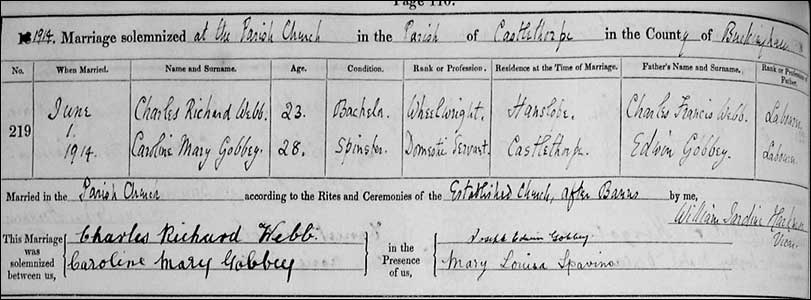 Page 110.
1914. Marriage solemnized at the Parish Church in the Parish of Castlethorpe in the County of Buckingham
No. When Married. Name and Surname. Age. Condition. Rank or Profession. Residence at the Time of Marriage. Father's Name and Surname. Rank or Profession Father.
219 June 1. 1914. Charles Richard Webb. 23. Bachelor Wheelwright. Hanslope. Charles Francis Webb. Labourer
Caroline Mary Gobbey. 28. Spinster Domestic Servant. Castlethorpe. Edwin Gobbey. Labourer
Married in the Parish Church according to the Rites and Ceremonies of the Established Church, after Banns by me,
William Jardine Vicar
This Marriage was solemnized between us, Charles Richard Webb. in the Presence of us, Joseph Edwin Gobbey.
Caroline Mary Gobbey Mary Louisa Spavins